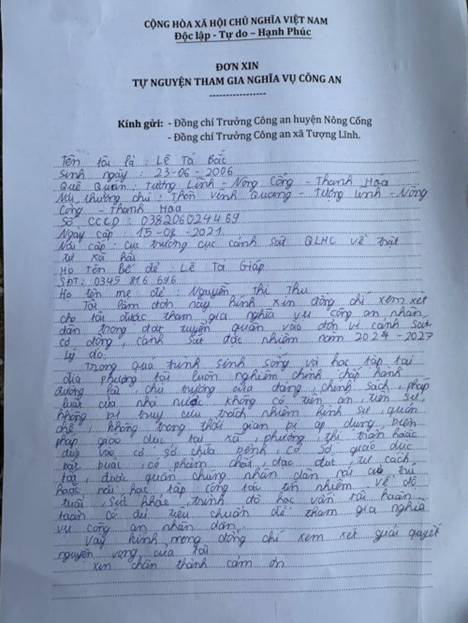 CỘNG HÒA XÃ HỘI CHỦ NGHĨA VIỆT NAM
Độc lập - Tự do – Hạnh Phúc
ĐƠN XIN
TỰ NGUYỆN THAM GIA NGHĨA VỤ CÔNG AN
Kính gửi: - Đồng chí Trưởng Công an huyện Nông Cống
- Đồng chí Trưởng Công an xã Tượng Lĩnh.
Tên tôi là : Lê Tá Bắc
Sinh ngày : 23-06-2006
Quê Quán : Tượng Lĩnh - Nông Cống - Thanh Hóa
Nơi thường chú : Thôn Vinh Quang - Tượng Lĩnh - Nông
Cống - Thanh Hóa
Số CCCD : 038206024469
Ngày cấp : 15-08-2021
Nơi cấp : cục trưởng cục cảnh sát QLHC về trật
tự xã hội
Họ tên bố đẻ : Lê Tá Giáp
SĐT : 0345 816 696
Họ tên mẹ đẻ : Nguyễn Thị Thu
Tôi làm đơn này kính xin đồng chí xem xét
cho tôi được tham gia nghĩa vụ công an nhân
dân trong đợt tuyển quân vào đơn vị cảnh sát
cơ động, cảnh sát đặc nhiệm năm 2024-2027
Lý do:
Trong quá trình sinh sống và học tập tại
địa phương tôi luôn nghiêm chỉnh chấp hành
đường lối, chủ trương của đảng, chính sách, pháp
luật của nhà nước không có tiền án, tiền sự,
không bị truy cứu trách nhiệm hình sự, quản
chế, không trong thời gian bị áp dụng biện
pháp giáo dục tại xã, phường, thị trấn hoặc
đưa vào cơ sở chữa bệnh, cơ sở giáo dục
bắt buộc, có phẩm chất, đạo đức, tư cách
tốt, được quần chúng nhân dân nơi cư trú
hoặc nơi học tập công tác tín nhiệm, về độ
tuổi, sức khỏe, trình độ học vấn tôi hoàn
toàn có đủ tiêu chuẩn để tham gia nghĩa
vụ công an nhân dân.
Vậy kính mong đồng chí xem xét giải quyết
nguyện vọng của tôi
xin chân thành cảm ơn